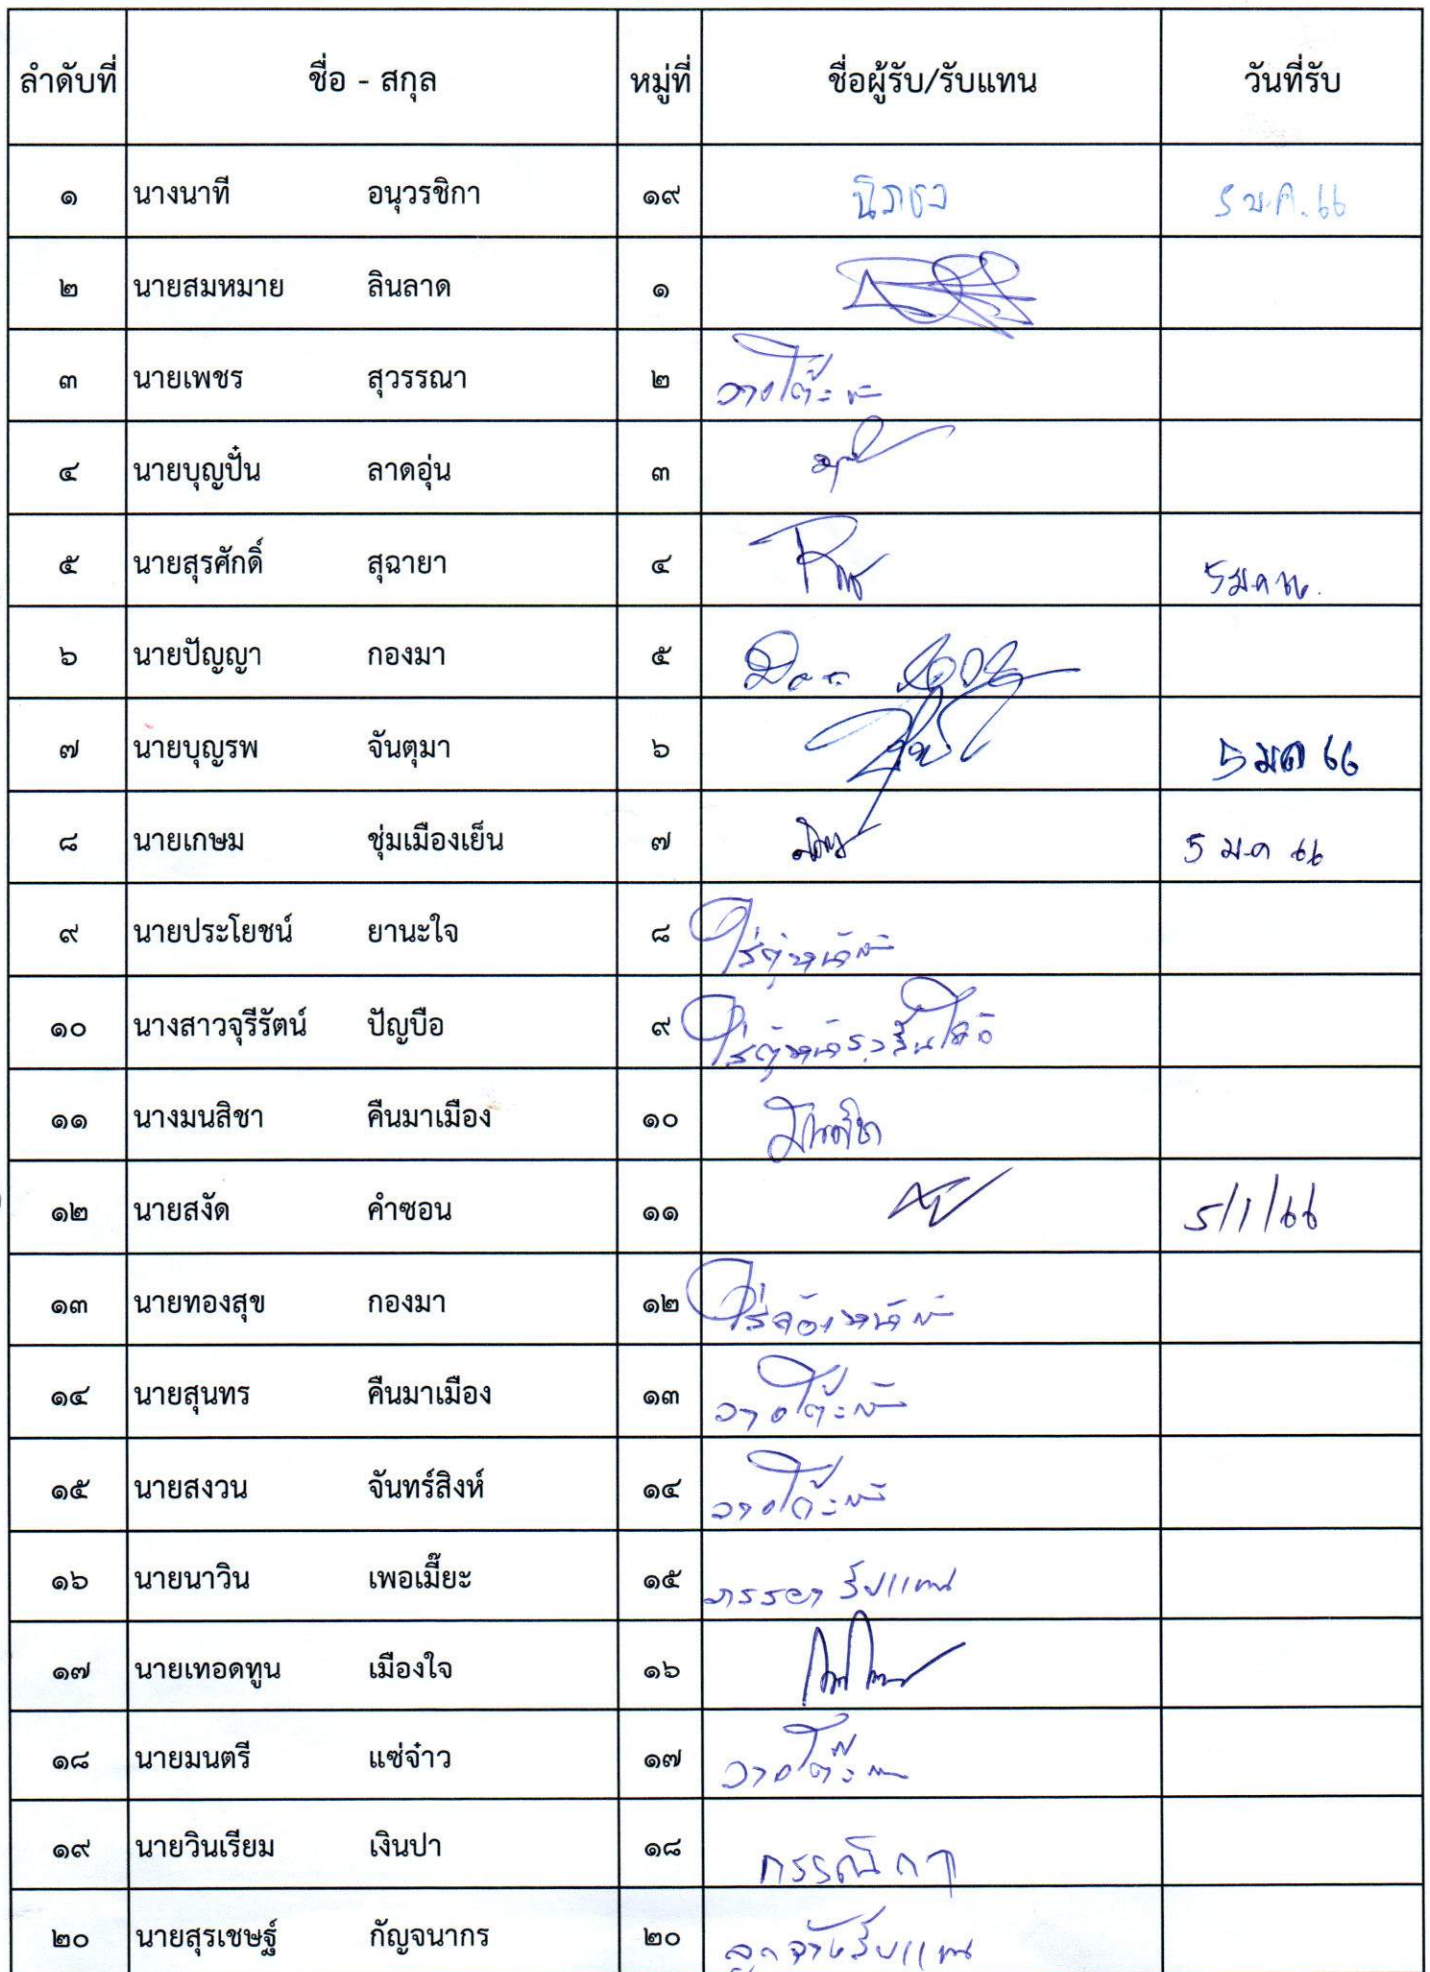 ลำดับที่ ชื่อ - สกุล หมู่ที่ ชื่อผู้รับ/รับแทน วันที่รับ
๑ นางนาที อนุวรชิกา ๑๙ 5 ม.ค. 66
๒ นายสมหมาย ลินลาด ๑
๓ นายเพชร สุวรรณา ๒ วางโต๊ะ
๔ นายบุญปั๋น ลาดอุ่น ๓
๕ นายสุรศักดิ์ สุฉายา ๔ 5 ม.ค 66.
๖ นายปัญญา กองมา ๕
๗ นายบุญรพ จันตุมา ๖ 5 มค 66
๘ นายเกษม ชุ่มเมืองเย็น ๗ 5 ม.ค 66
๙ นายประโยชน์ ยานะใจ ๘
๑๐ นางสาวจุรีรัตน์ ปัญบือ ๙
๑๑ นางมนสิชา คืนมาเมือง ๑๐ มนสิชา
๑๒ นายสงัด คำซอน ๑๑ 5/1/66
๑๓ นายทองสุข กองมา ๑๒
๑๔ นายสุนทร คืนมาเมือง ๑๓ วางโต๊ะ
๑๕ นายสงวน จันทร์สิงห์ ๑๔ วางโต๊ะ
๑๖ นายนาวิน เพอเมี๊ยะ ๑๕ ภรรยา รับแทน
๑๗ นายเทอดทูน เมืองใจ ๑๖
๑๘ นายมนตรี แซ่จ๋าว ๑๗ วางโต๊ะ
๑๙ นายวินเรียม เงินปา ๑๘ กรรณิการ์
๒๐ นายสุรเชษฐ์ กัญจนากร ๒๐ ลูกจ้างรับแทน